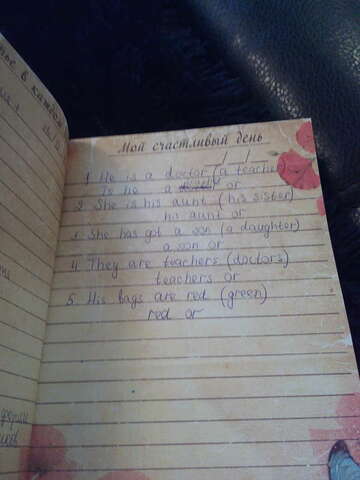 Мой счастливый день
__/__/__
1 He is a doctor (a teacher)
Is he a or
2. She is his aunt (his sister)
his aunt or
3 She has got a son (a daughter)
a son or
4. They are teachers (doctors)
teachers or
5. His bags are red (green)
red or